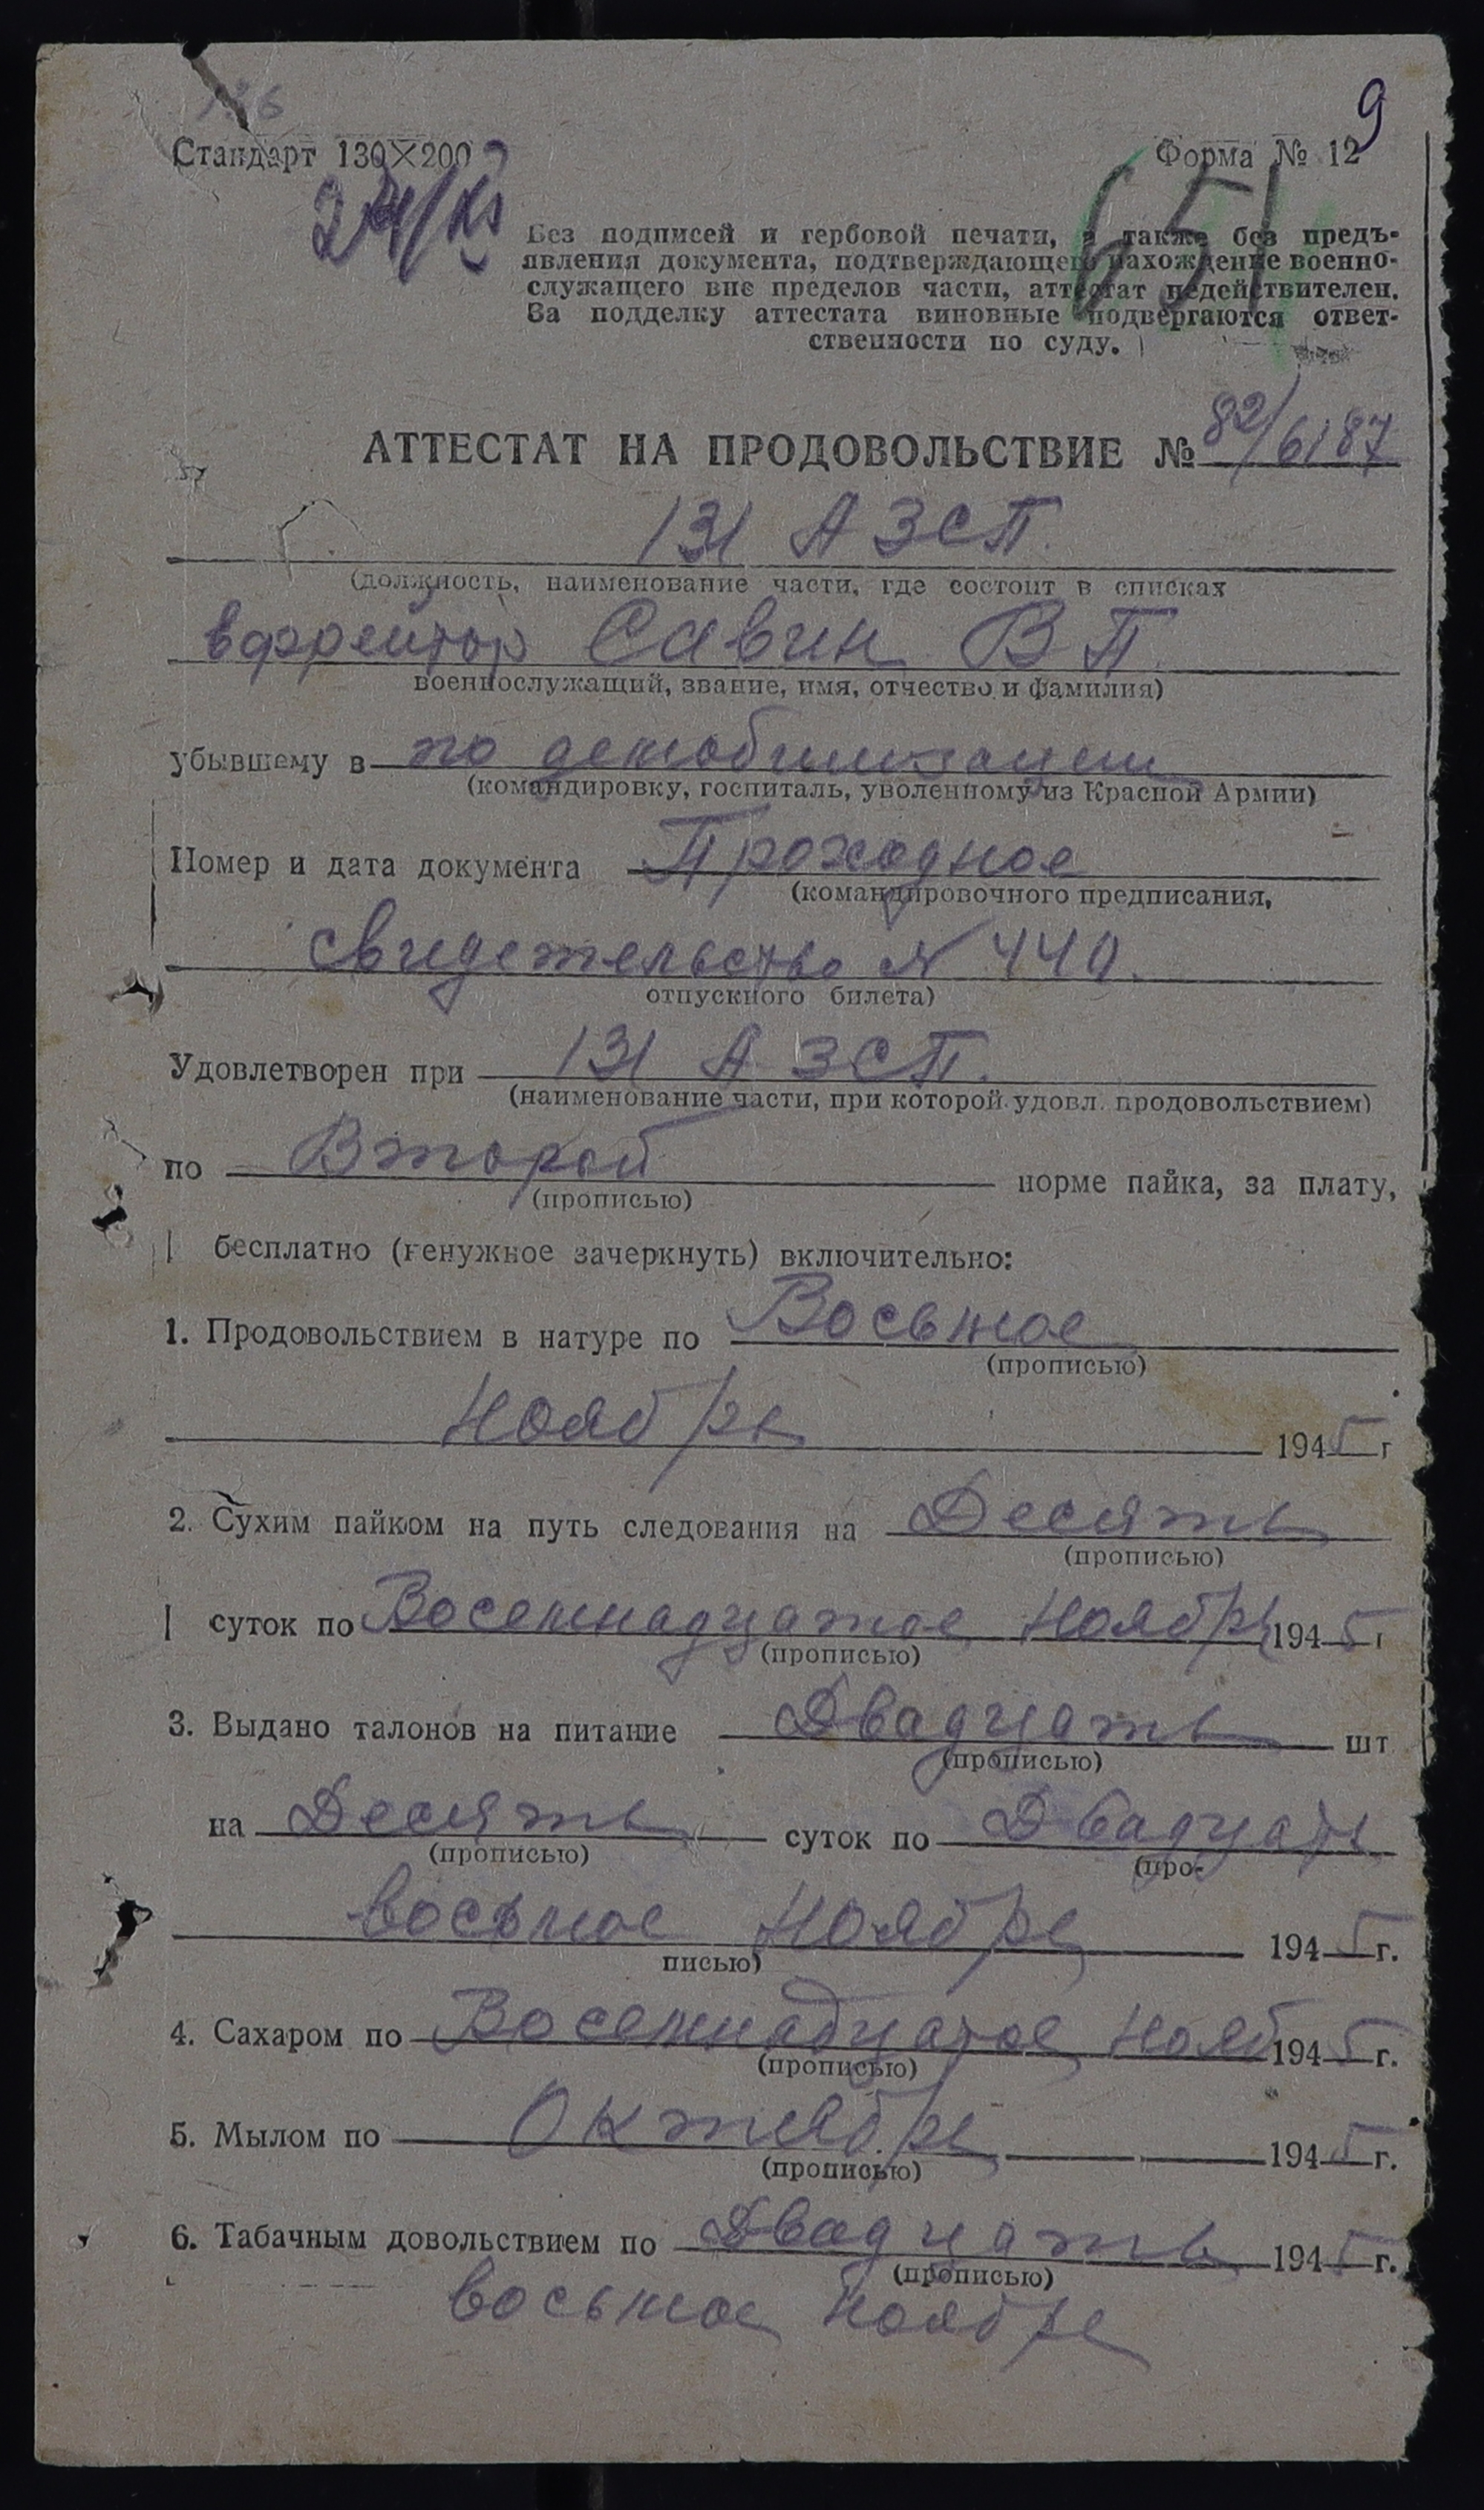 9
Стандарт 130×200
Форма № 12
651
Без подписей и гербовой печати, а также без предъ-
явления документа, подтверждающего нахождение военно-
служащего вне пределов части, аттестат недействителен.
За подделку аттестата виновные подвергаются ответ-
ственности по суду.
АТТЕСТАТ НА ПРОДОВОЛЬСТВИЕ № 82/6187
131 АЗСП.
(должность, наименование части, где состоит в списках
ефрейтор Савин В П.
военнослужащий, звание, имя, отчество и фамилия)
убывшему в по демобилизации
(командировку, госпиталь, уволенному из Красной Армии)
Номер и дата документа Проходное
(командировочного предписания,
свидетельство № 440.
отпускного билета)
Удовлетворен при 131 АЗСП.
(наименование части, при которой удовл. продовольствием)
по Второй норме пайка, за плату,
(прописью)
бесплатно (ненужное зачеркнуть) включительно:
1. Продовольствием в натуре по Восьмое
(прописью)
Ноября 1945 г
2. Сухим пайком на путь следования на Десять
(прописью)
суток по Восемнадцатое Ноября 1945 г
(прописью)
3. Выдано талонов на питание Двадцать шт
(прописью)
на Десять суток по Двадцать
(прописью) (про-
восьмое Ноября 1945 г.
писью)
4. Сахаром по Восемнадцатое Нояб 1945 г.
(прописью)
5. Мылом по Октябрь 1945 г.
(прописью)
6. Табачным довольствием по Двадцать 1945 г.
(прописью)
восьмое ноября